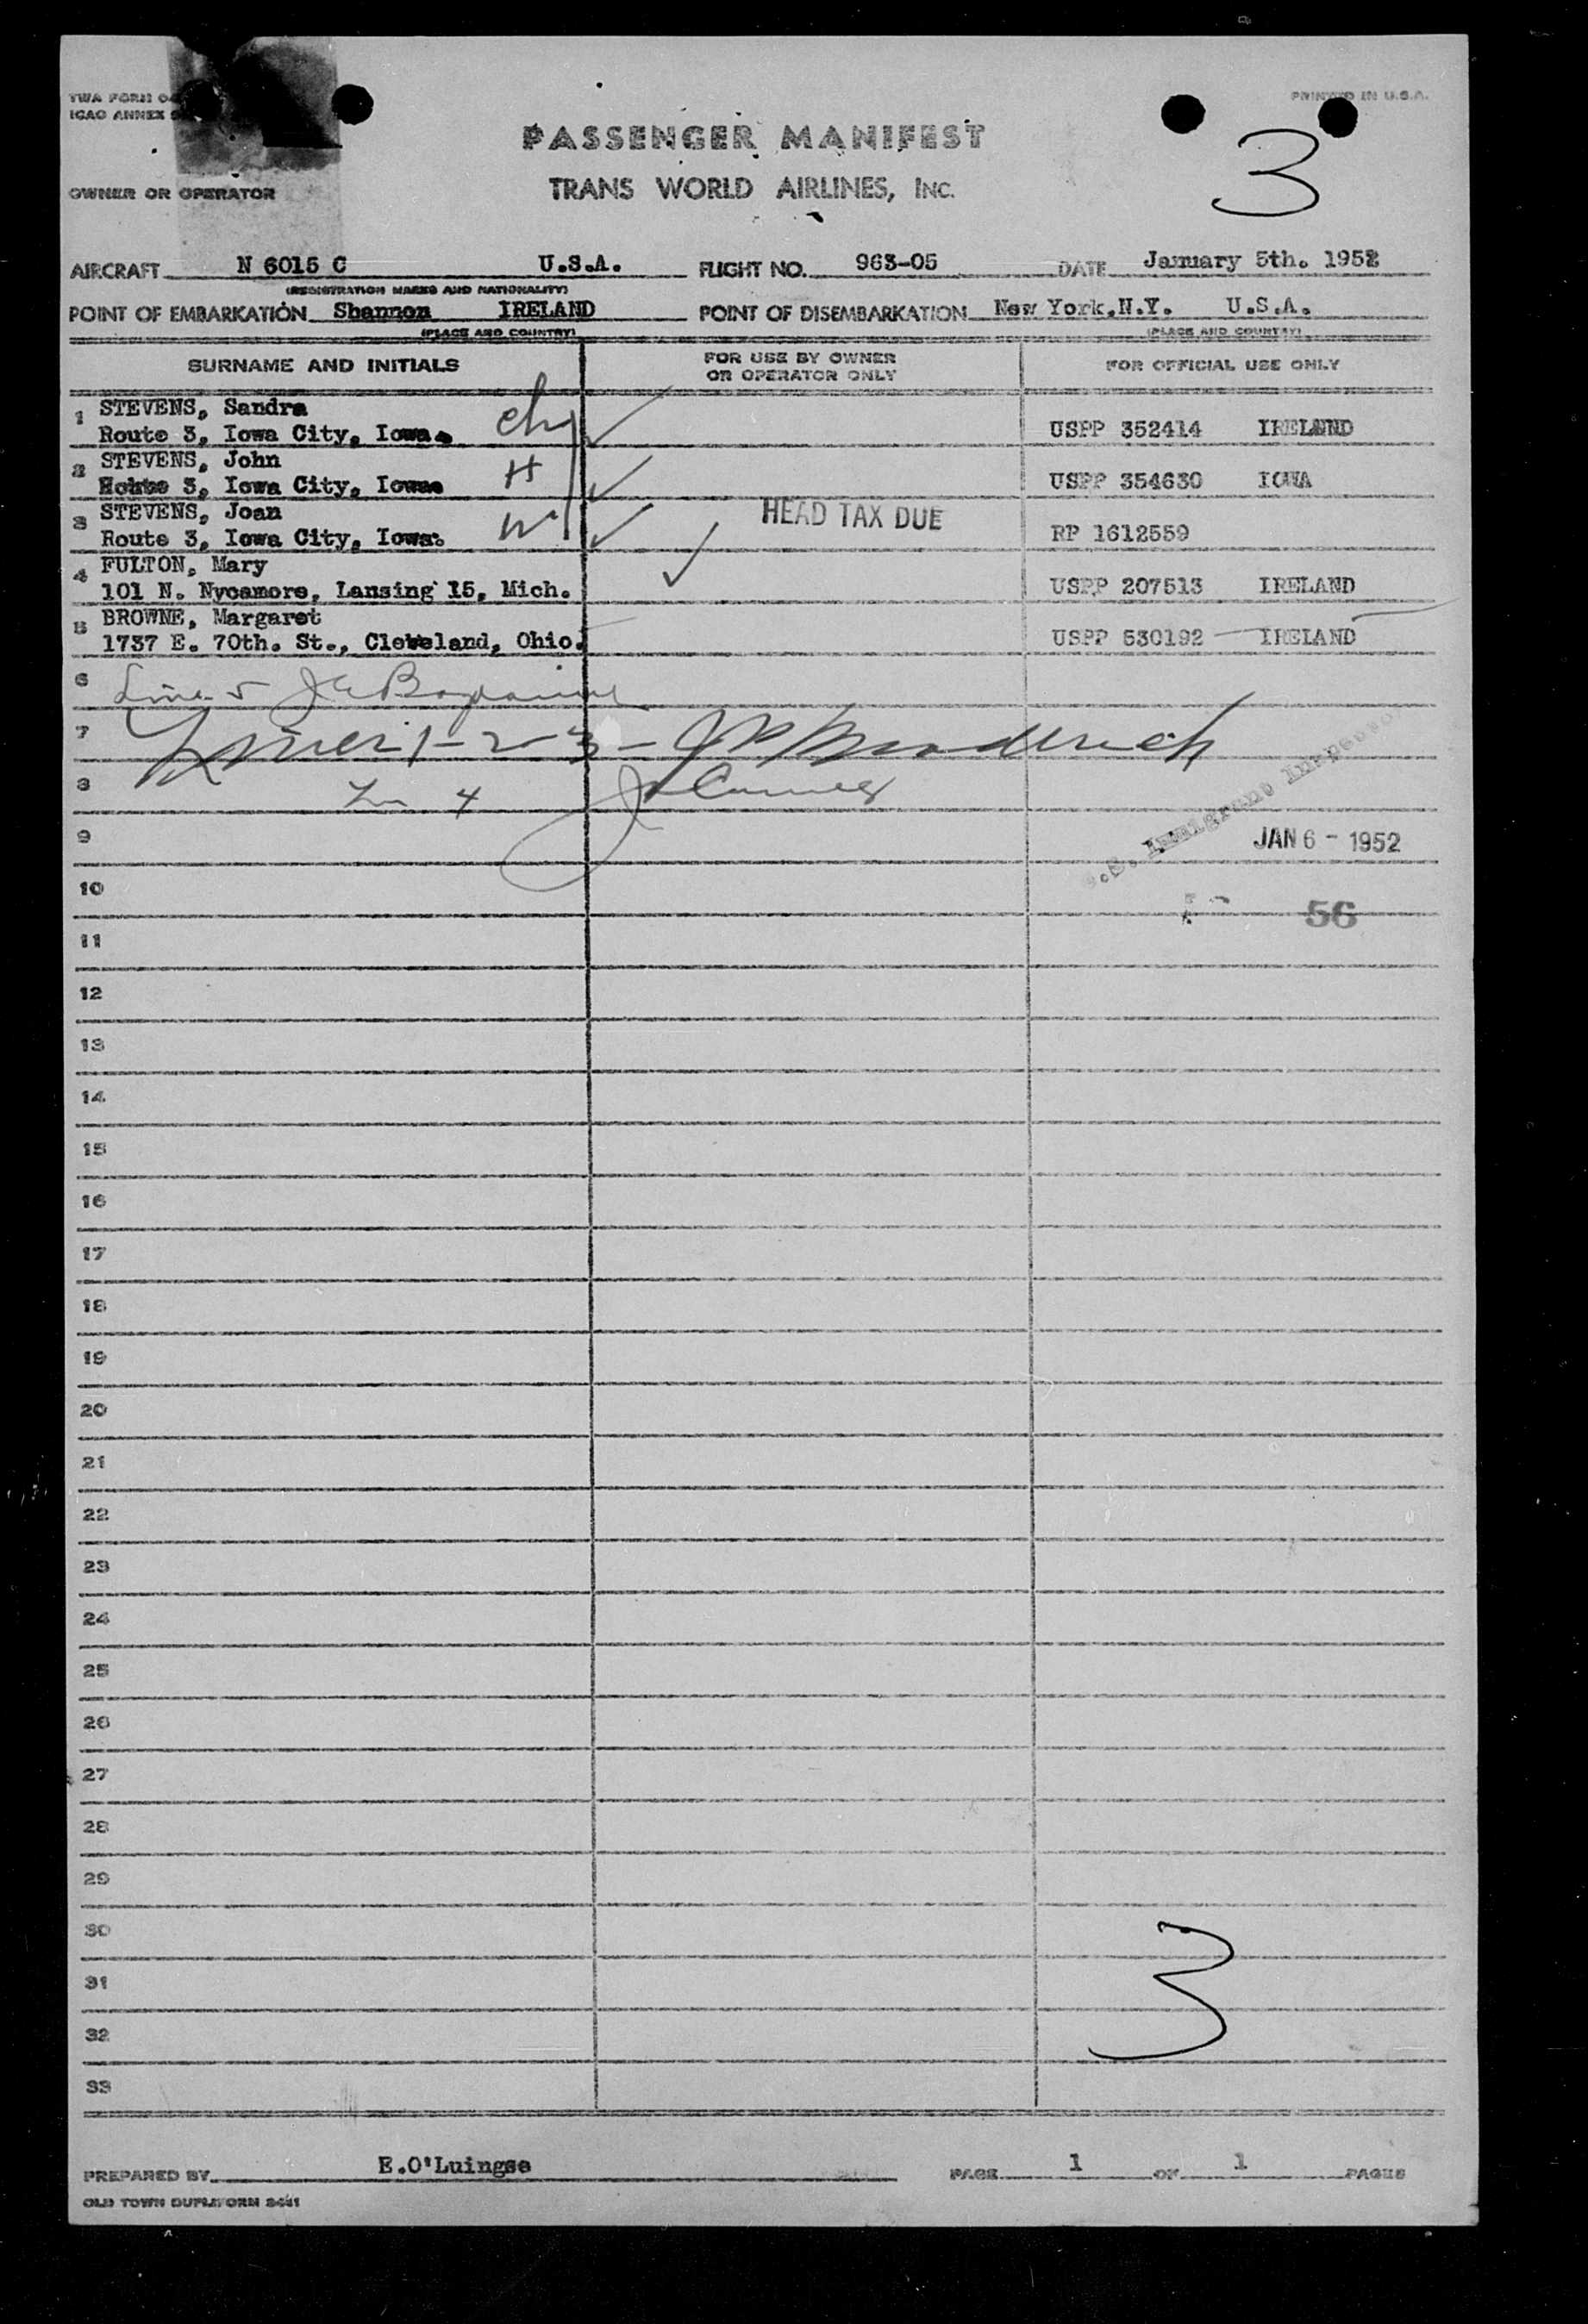 TWA FORM
ICAO ANNEX
PRINTED IN U.S.A.
PASSENGER MANIFEST
3
TRANS WORLD AIRLINES, INC.
OWNER OR OPERATOR
AIRCRAFT N 6015 C U.S.A. FLIGHT NO. 963-05 DATE January 5th. 1952
(REGISTRATION MARKS AND NATIONALITY)
POINT OF EMBARKATION Shannon IRELAND POINT OF DISEMBARKATION New York, N.Y. U.S.A.
(PLACE AND COUNTRY) (PLACE AND COUNTRY)
SURNAME AND INITIALS FOR USE BY OWNER OR OPERATOR ONLY FOR OFFICIAL USE ONLY
1 STEVENS, Sandra ch
Route 3, Iowa City, Iowa. USPP 352414 IRELAND
2 STEVENS, John H
Route 3, Iowa City, Iowa USPP 354630 IOWA
3 STEVENS, Joan W HEAD TAX DUE
Route 3, Iowa City, Iowa. RP 1612559
4 FULTON, Mary
101 N. Nycamore, Lansing 15, Mich. USPP 207513 IRELAND
5 BROWNE, Margaret
1737 E. 70th. St., Cleveland, Ohio. USPP 530192 IRELAND
6 Line 5
7 Lines 1-2-3-
8 Ln 4
U.S. Immigrant Inspector
9 JAN 6 - 1952
10
56
11
12
13
14
15
16
17
18
19
20
21
22
23
24
25
26
27
28
29
30
31 3
32
33
PREPARED BY E.O'Luingse PAGE 1 OF 1 PAGES
OLD TOWN DUPLIFORM